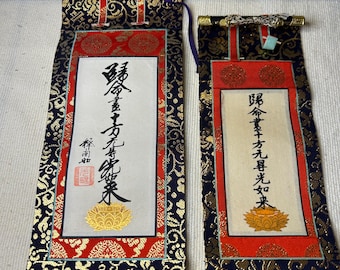 歸命盡十方无㝵光如來
釋闡如
歸命盡十方无㝵光如來